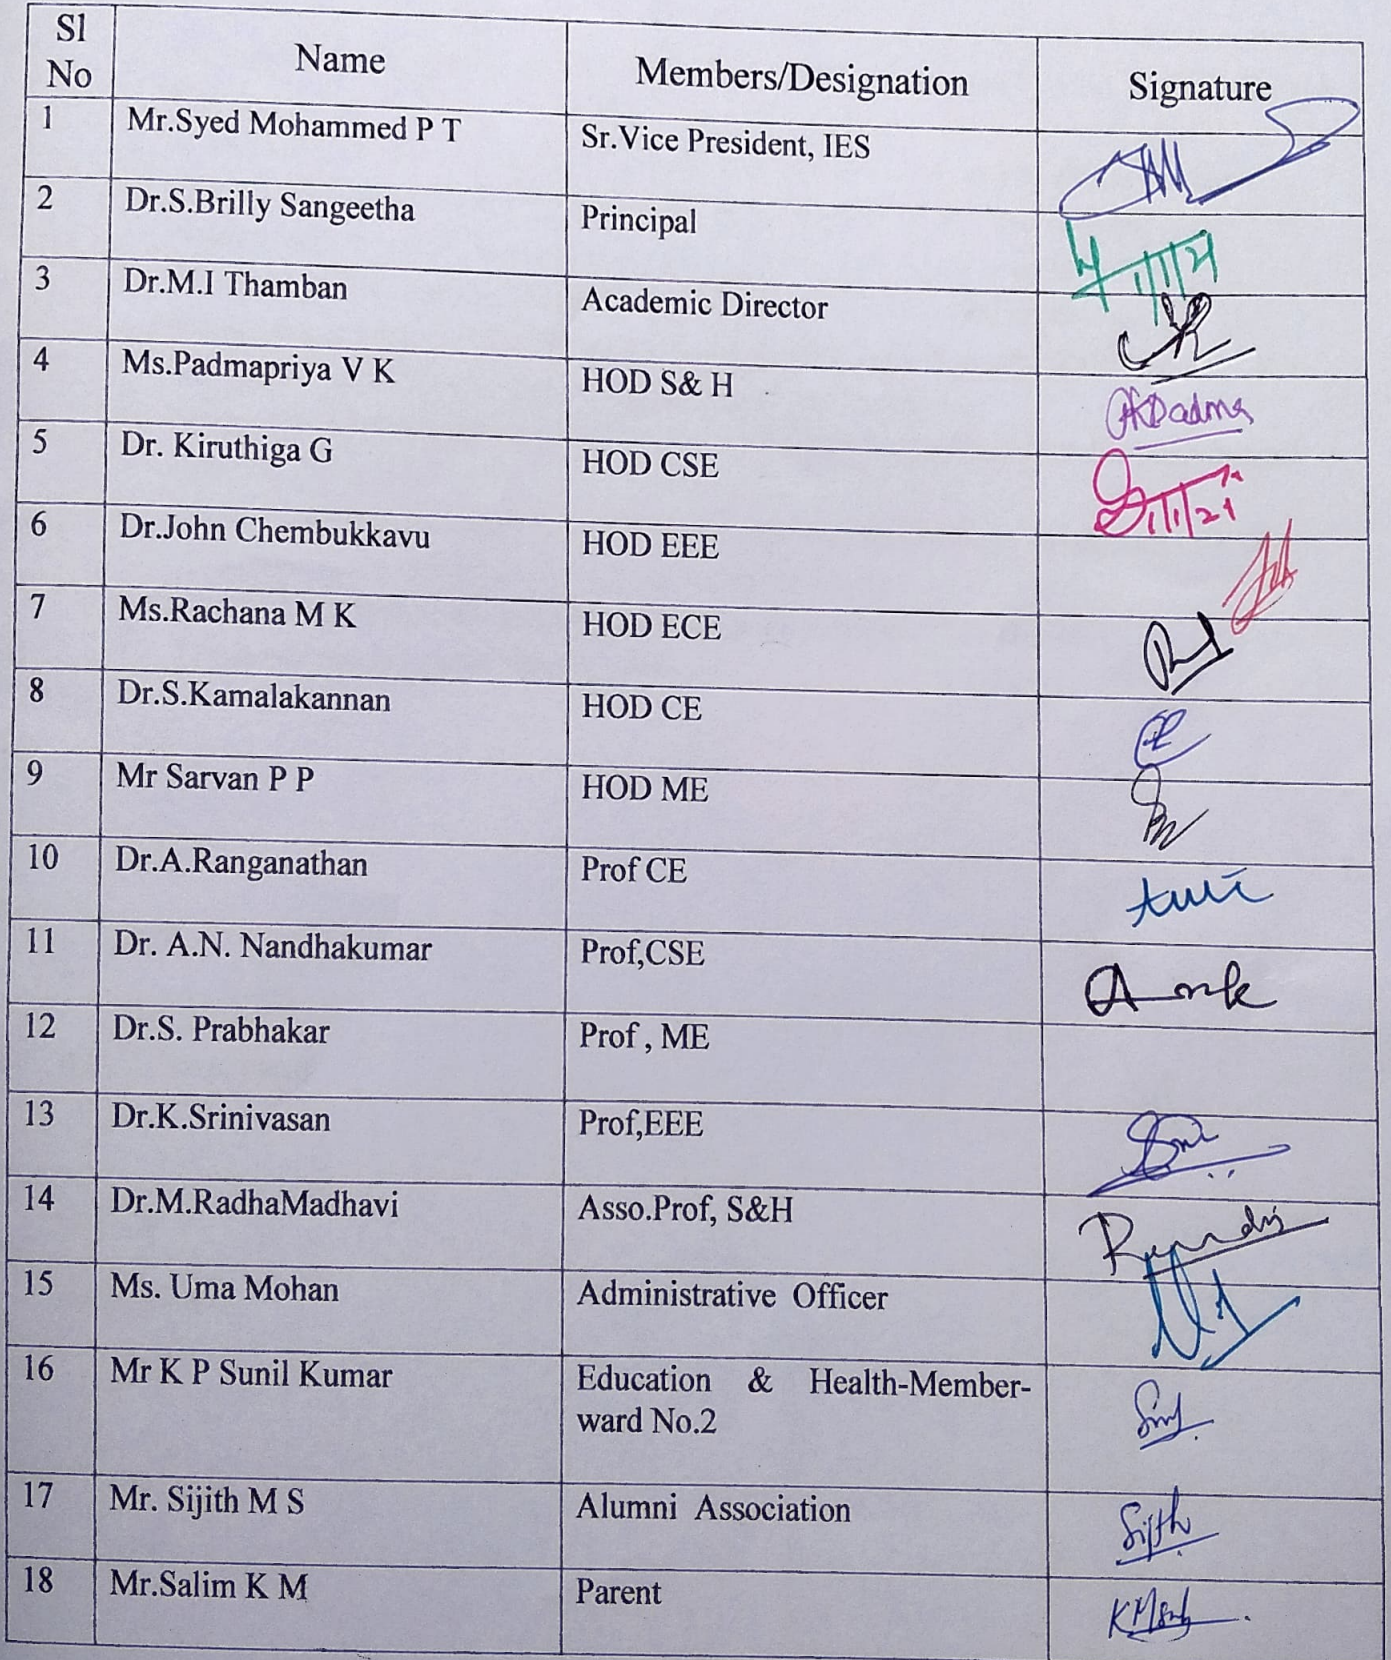 Sl No Name Members/Designation Signature
1 Mr.Syed Mohammed P T Sr.Vice President, IES
2 Dr.S.Brilly Sangeetha Principal
3 Dr.M.I Thamban Academic Director
4 Ms.Padmapriya V K HOD S& H
5 Dr. Kiruthiga G HOD CSE
6 Dr.John Chembukkavu HOD EEE
7 Ms.Rachana M K HOD ECE
8 Dr.S.Kamalakannan HOD CE
9 Mr Sarvan P P HOD ME
10 Dr.A.Ranganathan Prof CE
11 Dr. A.N. Nandhakumar Prof,CSE
12 Dr.S. Prabhakar Prof , ME
13 Dr.K.Srinivasan Prof,EEE
14 Dr.M.RadhaMadhavi Asso.Prof, S&H
15 Ms. Uma Mohan Administrative Officer
16 Mr K P Sunil Kumar Education & Health-Member-
ward No.2
17 Mr. Sijith M S Alumni Association
18 Mr.Salim K M Parent